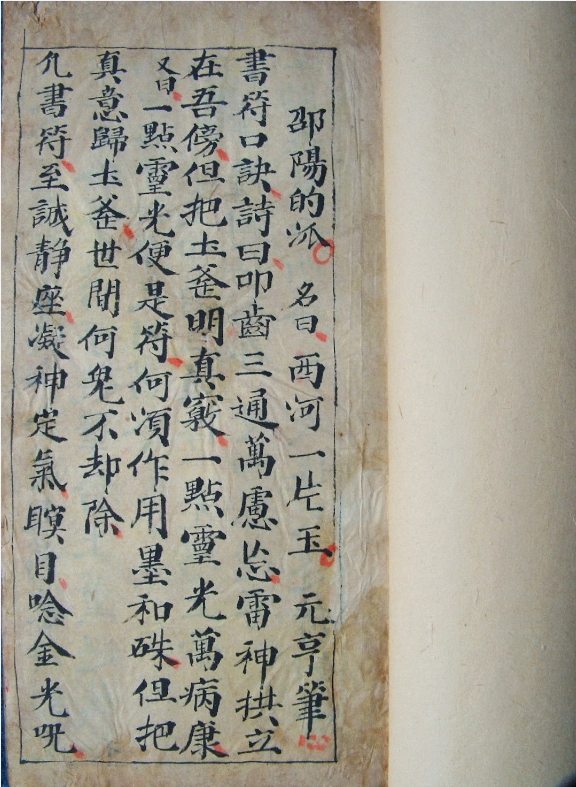 邵陽的派 名曰 西河一片玉 元亨筆
書符口訣詩曰叩齒三通萬慮忘雷神拱立
在吾傍但把土釜明真竅一點靈光萬病康
又曰一點靈光便是符何須作用墨和硃但把
真意歸土釜世間何鬼不却除
凢書符至誠静座凝神定氣瞑目唸金光咒